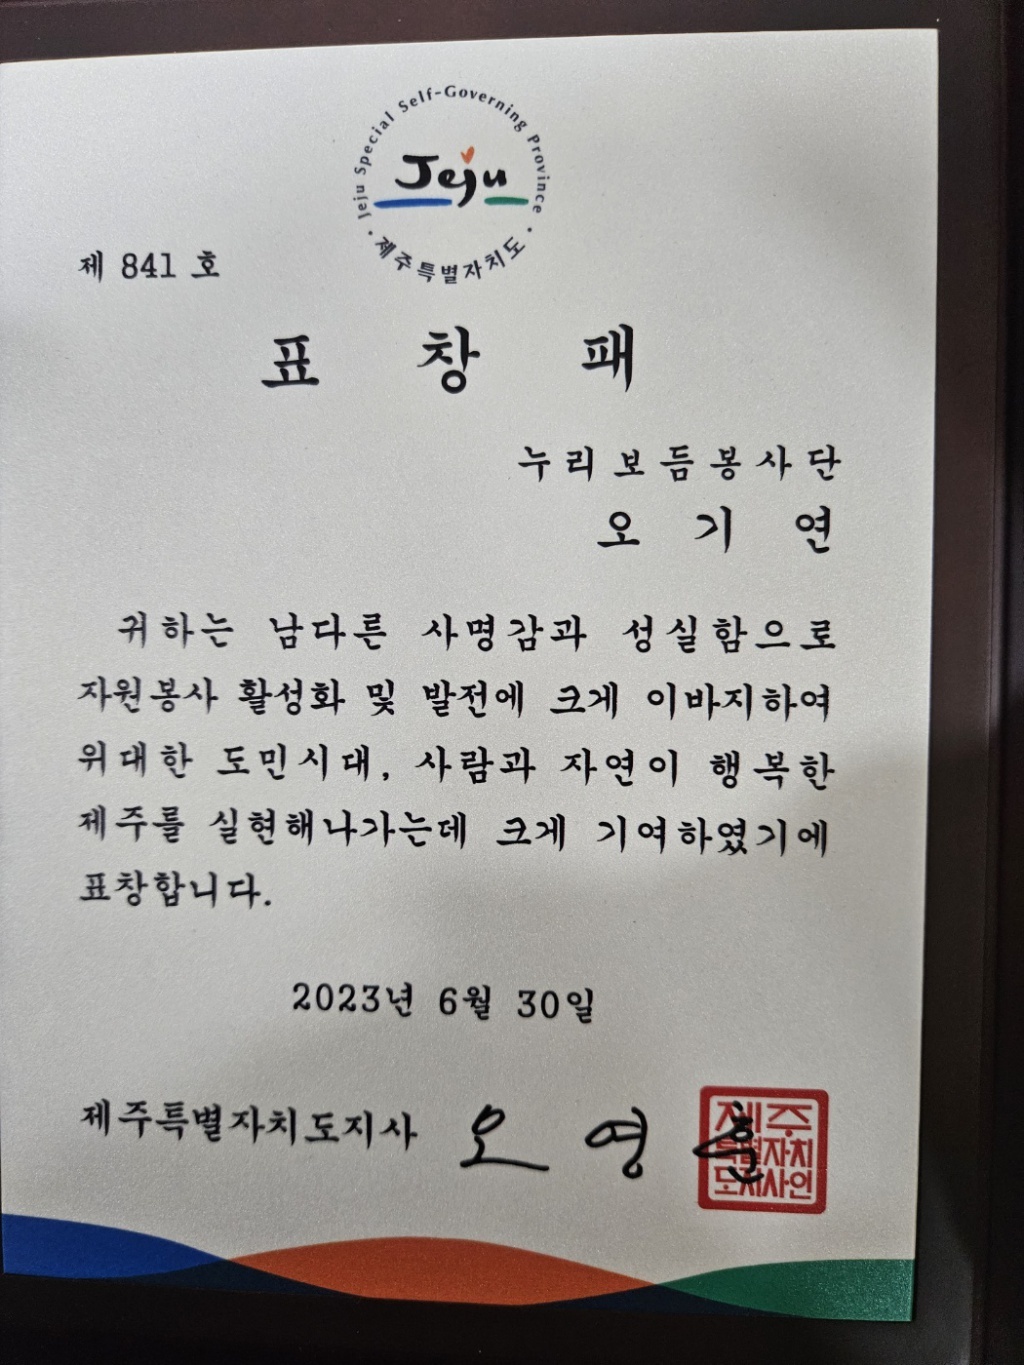 Jeju Special Self-Governing Province
Jeju
· 제주특별자치도 ·
제 841 호
표 창 패
누리보듬봉사단
오 기 연
귀하는 남다른 사명감과 성실함으로
자원봉사 활성화 및 발전에 크게 이바지하여
위대한 도민시대, 사람과 자연이 행복한
제주를 실현해나가는데 크게 기여하였기에
표창합니다.
2023년 6월 30일
제주특별자치도지사 오 영 훈
제주
특별자치
도지사인